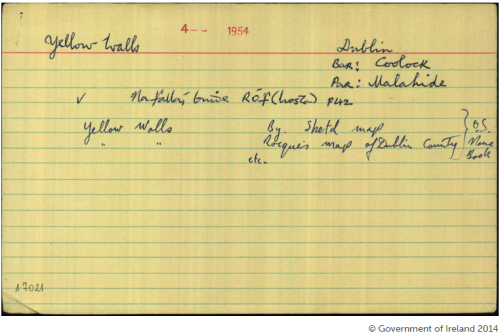 4 -- 1954
Yellow Walls
Dublin
Bar: Coolock
Par: Malahide
✓ Na fallaí buíde RÓF (Losca) P142
Yellow Walls By. Sketch map
" " Rocque's map of Dublin County
etc.
} O.S. Name Book
17021
© Government of Ireland 2014